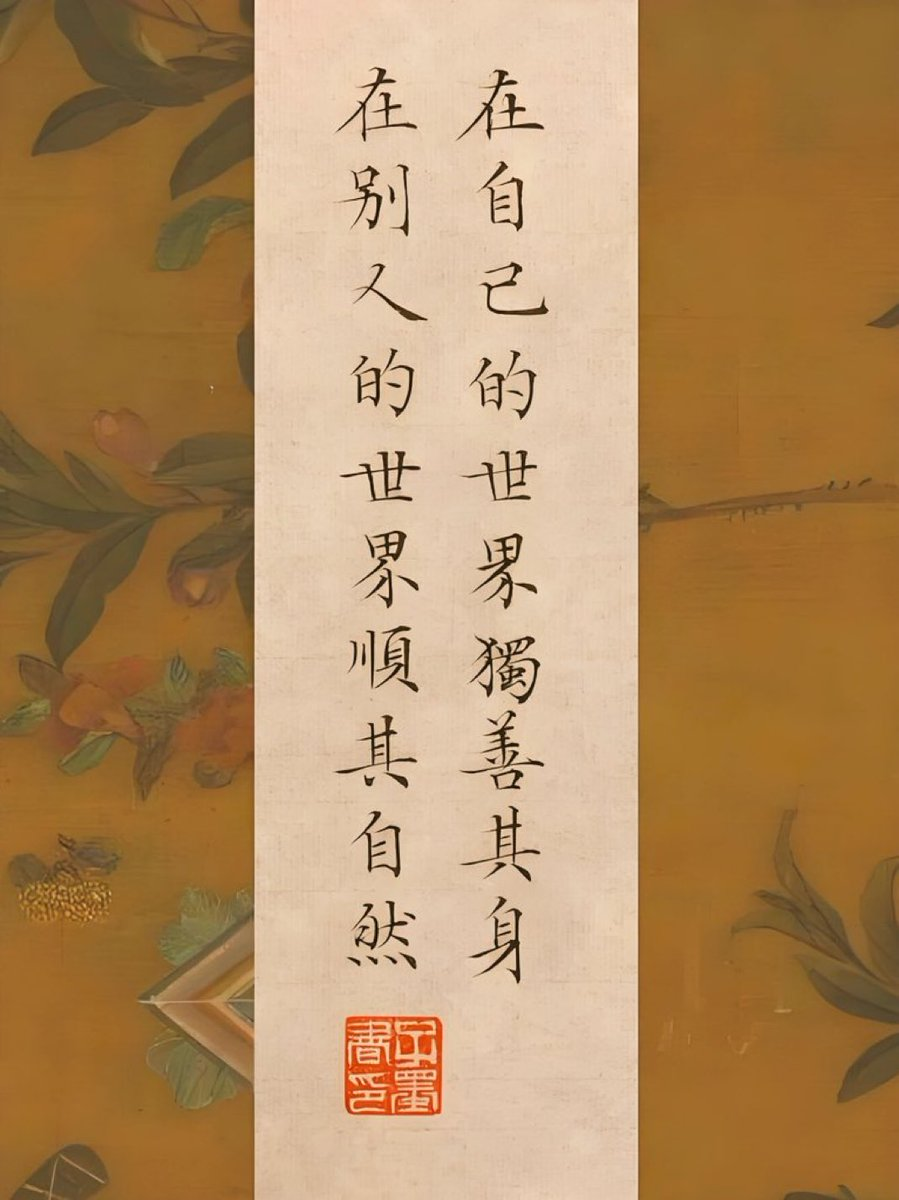 在自己的世界獨善其身
在别人的世界順其自然